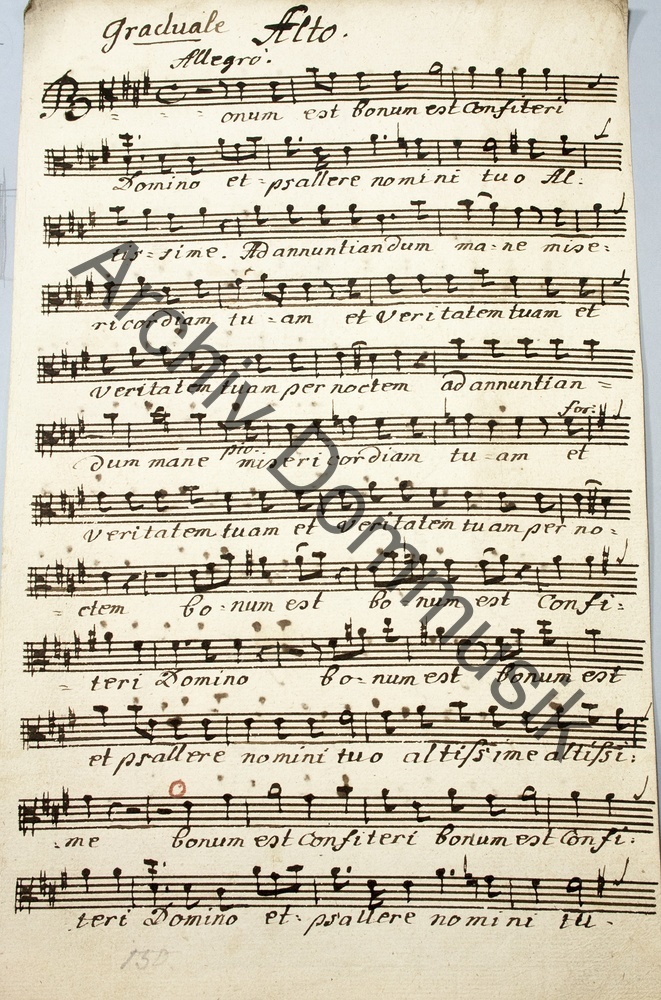 Graduale Alto.
Allegro.
Bonum est bonum est Confiteri
Domino et psallere nomini tuo Al:
tis=sime. Ad annuntiandum ma=ne mise:
ricordiam tu=am et Veritatem tuam et
veritatem tuam per noctem ad annuntian=
for:
dum mane miseri cordiam tu=am et
pia:
veritatem tuam et veritatem tuam per no=
=ctem bo=num est bo num est Confi:
=teri Domino bo=num est bonum est
et psallere nomini tuo altissime altissi:
=me bonum est Confiteri bonum est Confi:
teri Domino et=psallere nomini tu-
150.
Archiv Dommusik